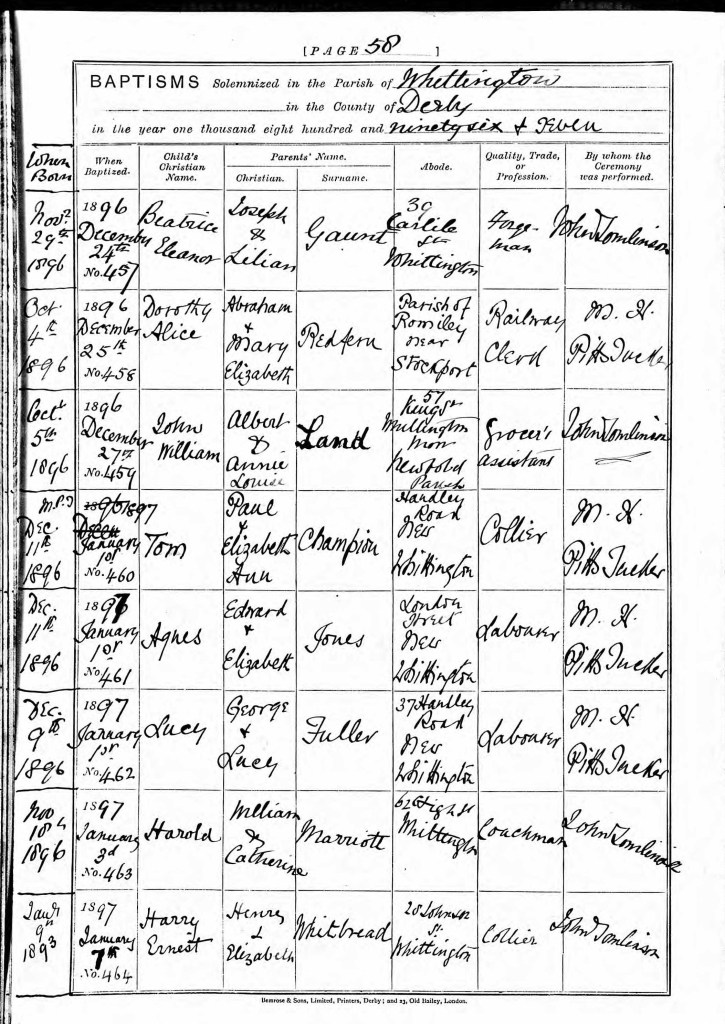 [PAGE 58 ]
BAPTISMS Solemnized in the Parish of Whittington
in the County of Derby
in the year one thousand eight hundred and ninety six & seven
When Born
When Baptized.
Child's Christian Name.
Parents' Name.
Christian.
Surname.
Abode.
Quality, Trade, or Profession.
By whom the Ceremony was performed.
Novr
29th
1896
1896
December
24th
No. 457
Beatrice
Eleanor
Joseph
&
Lilian
Gaunt
Carlile
St
Whittington
Forge-
man
John Tomlinson
Oct
4th
1896
1896
December
25th
No. 458
Dorothy
Alice
Abraham
+
Mary
Elizabeth
Redfern
Parish of
Romiley
near
Stockport
Railway
Clerk
M. H.
Pitts Tucker
Oct
5th
1896
1896
December
27th
No. 459
John
William
Albert
&
Annie
Louise
Land
57
King St
Whittington
Moor
Newbold
Parish
Grocer's
assistant
John Tomlinson
M.P.T
Dec.
11th
1896
1896 1897
Decem
January
1st
No. 460
Tom
Paul
+
Elizabeth
Ann
Champion
Handley
Road
New
Whittington
Collier
M. H.
Pitts Tucker
Dec.
11th
1896
1897
January
1st
No. 461
Agnes
Edward
+
Elizabeth
Jones
London
Street
New
Whittington
Labourer
M. H.
Pitts Tucker
Dec.
9th
1896
1897
January
1st
No. 462
Lucy
George
+
Lucy
Fuller
37 Handley
Road
New
Whittington
Labourer
M. H.
Pitts Tucker
Nov
18th
1896
1897
January
3d
No. 463
Harold
William
&
Catherine
Marriott
High St
Whittington
Coachman
John Tomlinson
Jany
9th
1893
1897
January
7th
No. 464
Harry
Ernest
Henry
&
Elizabeth
Whitbread
28 Johnson
St.
Whittington
Collier
John Tomlinson
Bemrose & Sons, Limited, Printers, Derby; and 23, Old Bailey, London.